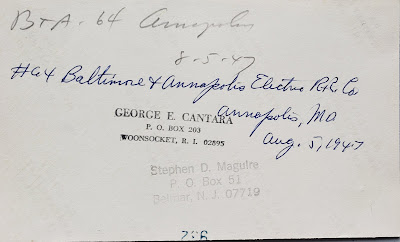 B+A. 64 Annapolis
8-5-47
#64 Baltimore & Annapolis Electric R.R. Co
Annapolis, MD
Aug. 5, 1947
GEORGE E. CANTARA
P. O. BOX 203
WOONSOCKET, R. I. 02895
Stephen D. Maguire
P. O. Box 51
Belmar, N. J. 07719